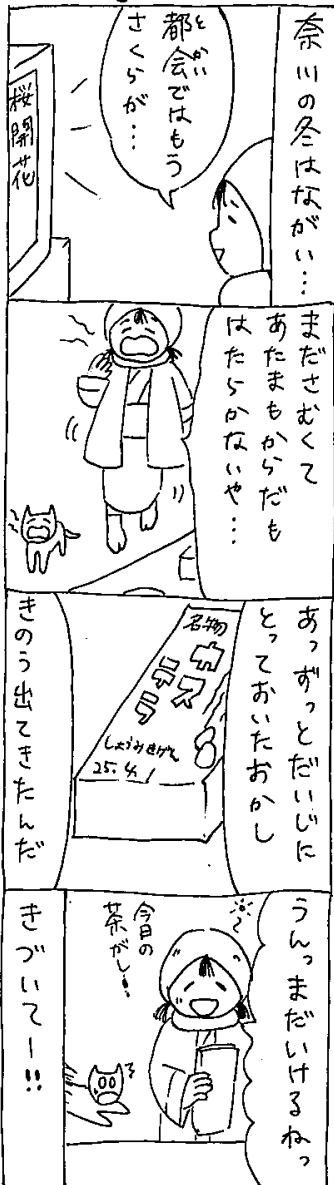 奈川の冬はながい…
都会ではもう
さくらが…
桜開花
まださむくて
あたまもからだも
はたらかないや…
あっずっとだいじに
とっておいたおかし
名物
カス
テラ
しょうみきげん
25.4.1
きのう出てきたんだ
うんっまだいけるねっ
今日の
茶がし!
きづいてー!!